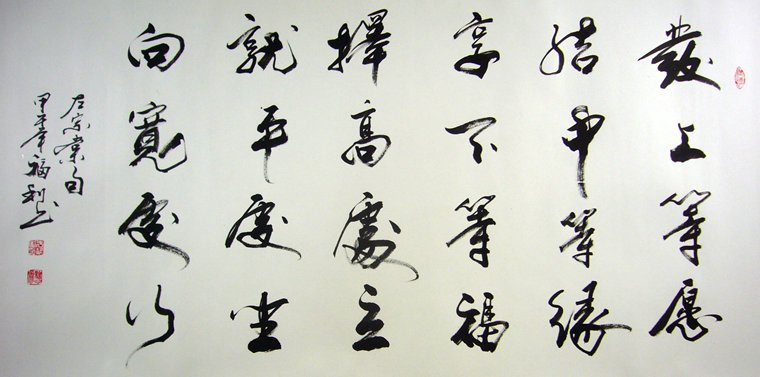 發上等愿
結中等緣
享下等福
擇高處立
就平處坐
向寬處行
左宗棠句
甲午年福利书